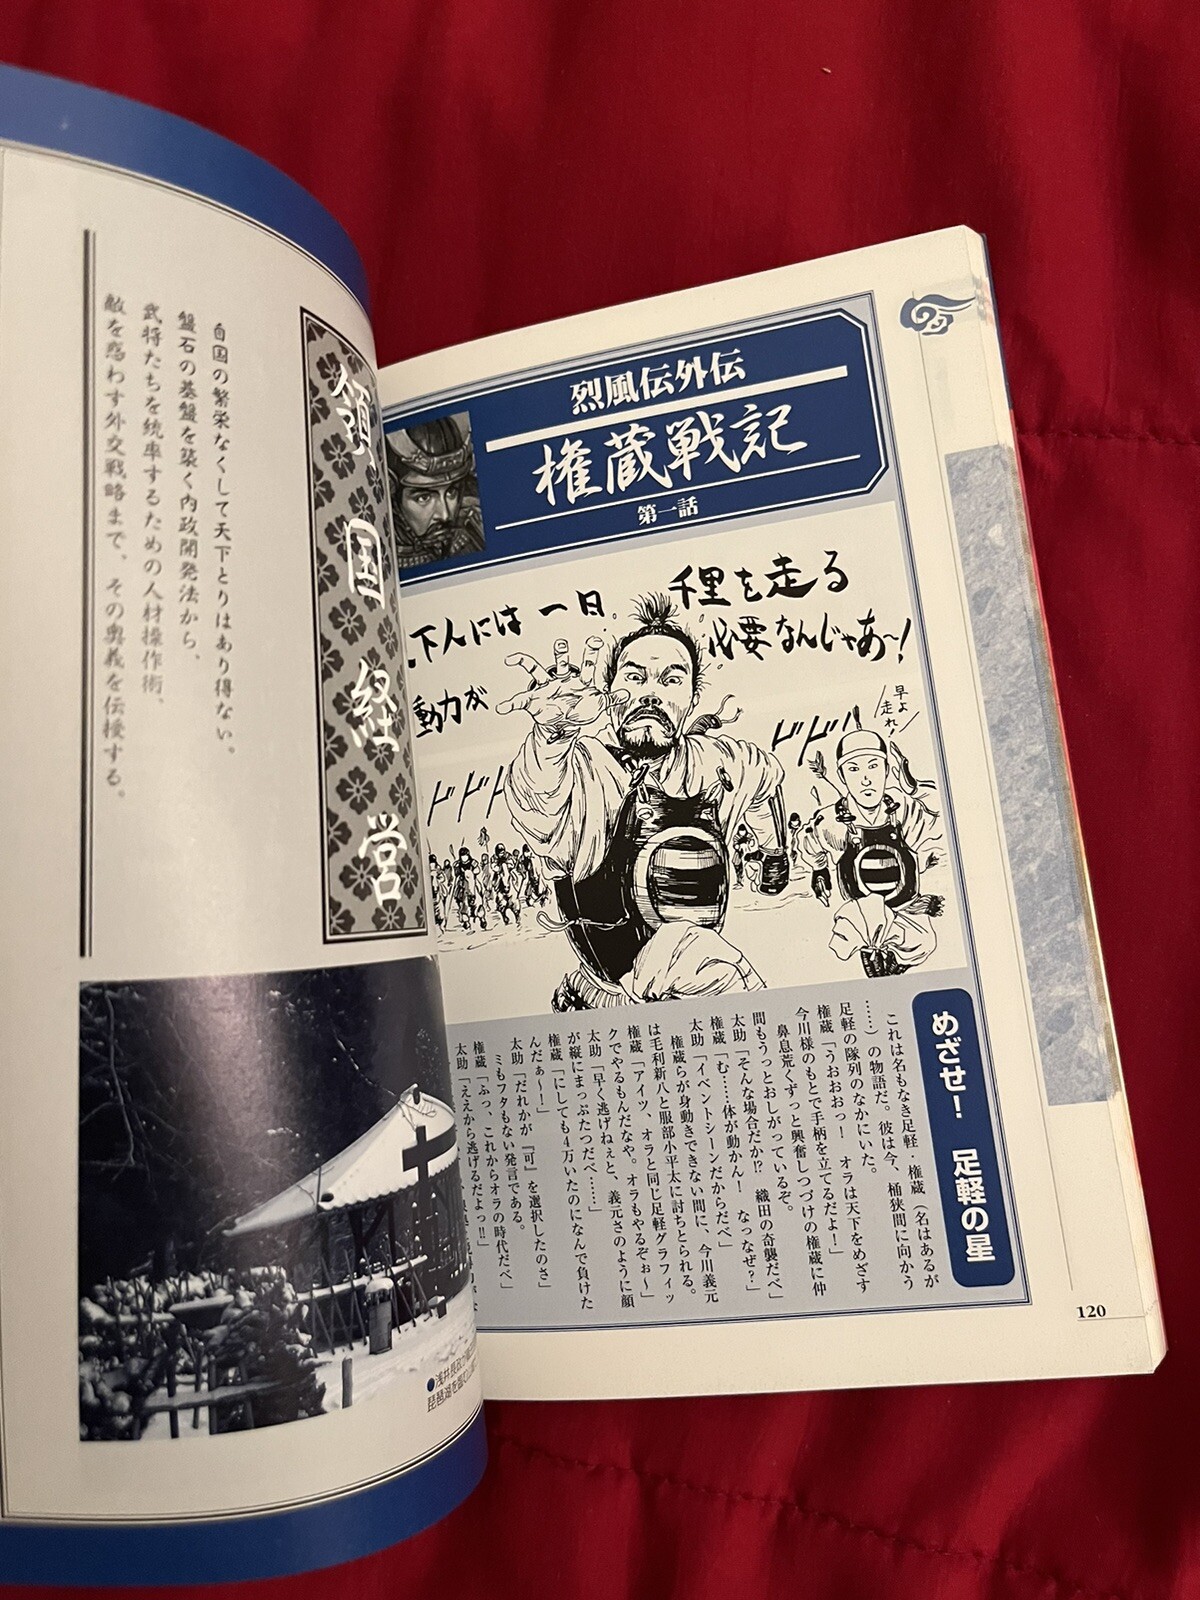 烈風伝外伝
権蔵戦記
第一話
千里を走る
一日
下人には
必要なんじゃあ〜!
動力が
早よ
走れ!
ドドド
ドドド
めざせ! 足軽の星
これは名もなき足軽・権蔵(名はあるが
……)の物語だ。彼は今、桶狭間に向かう
足軽の隊列のなかにいた。
権蔵「うおおおっ! オラは天下をめざす
今川様のもとで手柄を立てるだよ!」
鼻息荒くずっと興奮しつづけの権蔵に仲
間もうっとおしがっているぞ。
太助「そんな場合だか!? 織田の奇襲だべ」
権蔵「む……体が動かん! なっなぜ?」
太助「イベントシーンだからだべ」
権蔵らが身動きできない間に、今川義元
は毛利新八と服部小平太に討ちとられる。
権蔵「アイツ、オラと同じ足軽グラフィッ
クでやるもんだなや。オラもやるぞぉ〜」
太助「早く逃げねぇと、義元さのように顔
が縦にまっぷたつだべ……」
権蔵「にしても4万いたのになんで負けた
んだぁ〜!」
太助「だれかが『可』を選択したのさ」
ミもフタもない発言である。
権蔵「ふっ、これからオラの時代だべ」
太助「ええから逃げるだよっ!!」
120
領国経営
自国の繁栄なくして天下とりはあり得ない。
盤石の基盤を築く内政開発法から、
武将たちを統率するための人材操作術、
敵を惑わす外交戦略まで、その奥義を伝授する。
●浅井長政が
琵琶湖を